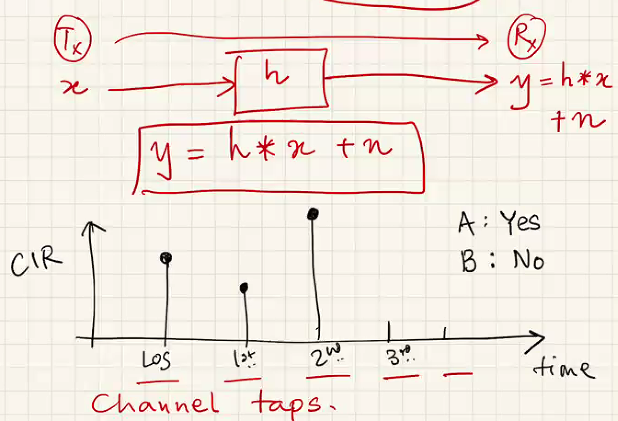 Tx Rx
x h y = h*x
+n
y = h*x +n
A: Yes
CIR B: No
LOS 1st 2nd 3rd time
Channel taps.